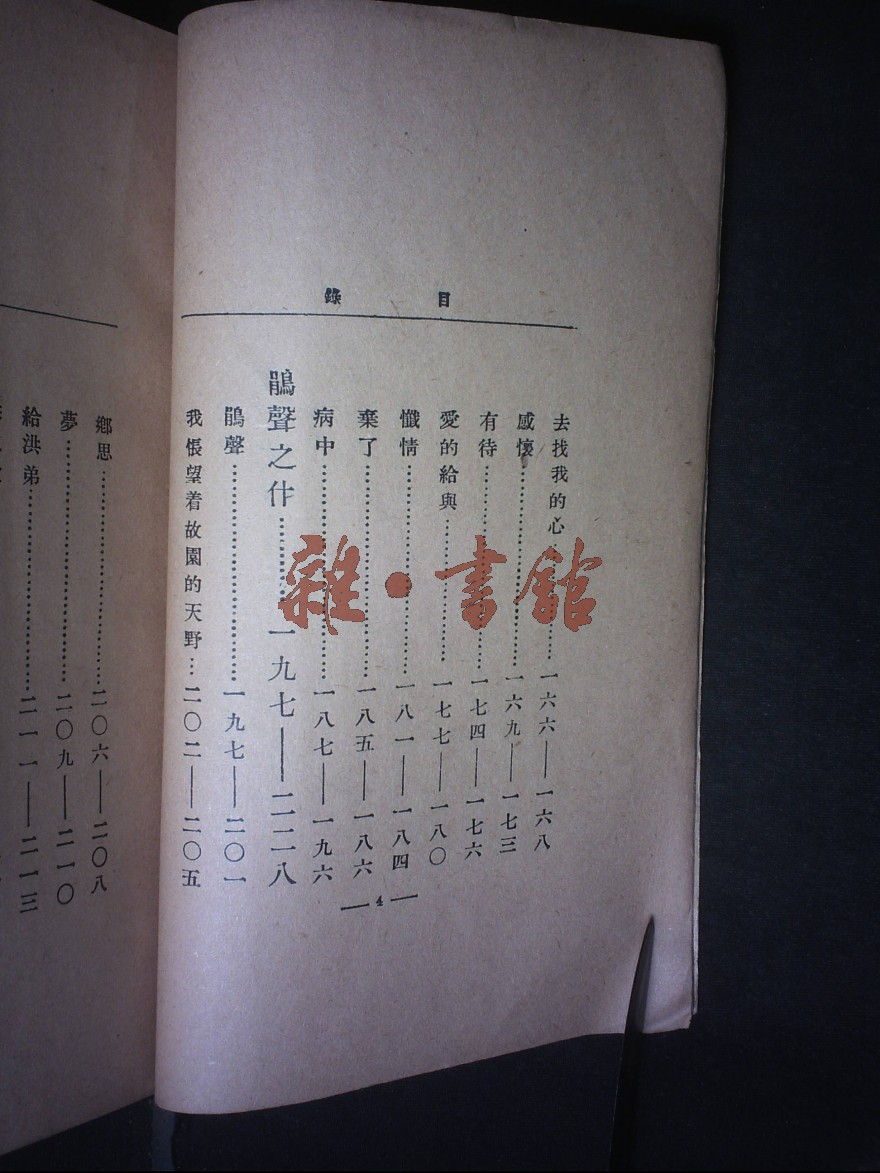 目錄
去找我的心……一六六——一六八
感懷……一六九——一七三
有待……一七四——一七六
愛的給與……一七七——一八〇
懺情……一八一——一八四
棄了……一八五——一八六
病中……一八七——一九六
鵑聲之什……一九七——二二八
鵑聲……一九七——二〇一
我悵望着故園的天野…二〇二——二〇五
—4—
鄉思……二〇六——二〇八
夢……二〇九——二一〇
給洪弟……二一一——二一三
雜·書舘